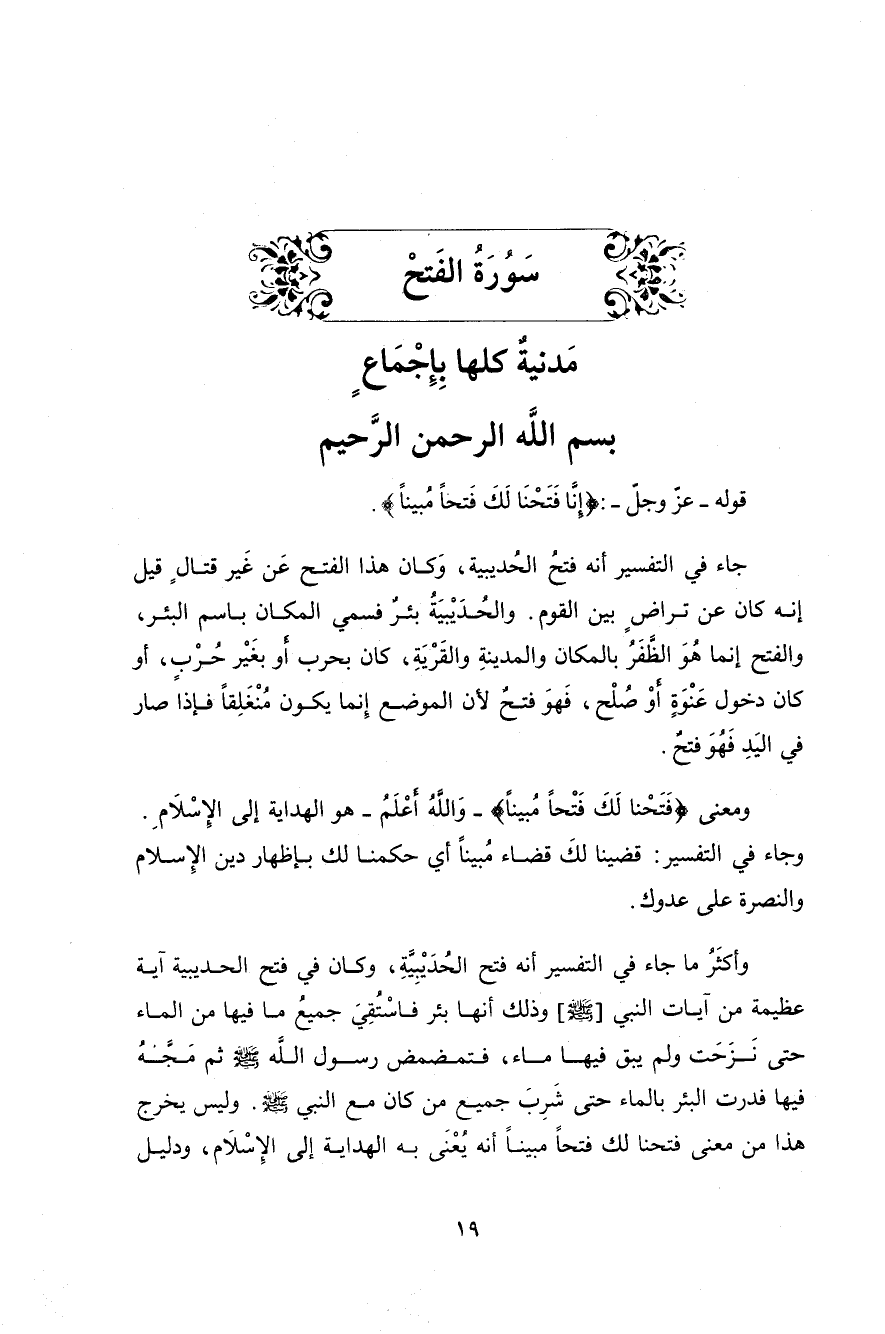 سَوُرَةُ الفَتحْ
مَدنيةٌ كلها بِإِجْمَاعٍ
بسم اللَّه الرحمن الرَّحيم
قوله ـ عزّ وجلّ ـ :﴿إِنَّا فَتَحْنَا لَكَ فَتحاً مُبيناً﴾ .
جاء في التفسير أنه فتحُ الحُديبية، وَكـان هذا الفتـح عَن غَير قتـالٍ قيل
إنـه كان عن تـراضٍ بين القوم . والحُـدَيْبِيَةُ بئـرٌ فسمي المكـان بـاسم البئـر،
والفتح إنما هُوَ الظَّفَرُ بالمكان والمدينةِ والقَرْيَةِ، كان بحرب أَو بغَيْر حُـرْبٍ، أو
كان دخول عَنْوَةٍ أَوْ صُلْح، فَهوَ فتـحٌ لأن الموضـع إنما يكـون مُنْغَلِقاً فـإذا صار
في اليَدِ فَهُوَ فتحٌ .
ومعنى ﴿فَتَحْنا لَكَ فَتْحاً مُبيناً﴾ ـ وَاللَّهُ أَعْلَمُ ـ هو الهداية إلى الإسْلَامِ .
وجاء في التفسير: قضينا لكَ قضـاء مُبيناً أي حكمنـا لك بـإظهار دين الإسـلام
والنصرة على عدوك .
وأكثَرُ ما جاء في التفسير أنه فتح الحُدَيْبِيَّةِ، وكـان في فتح الحـديبية آيـة
عظيمة من آيـات النبي [ﷺ] وذلك أنهـا بئر فـاسْتُقِيَ جميعُ مـا فيها من المـاء
حتى نَـزَحَت ولم يبق فيهـا مـاء، فـتمـضمض رسـول الـلَّه ﷺ ثم مَـجَّـهُ
فيها فدرت البئر بالماء حتى شَرِبَ جميـع من كان مـع النبي ﷺ. وليس يخرج
هذا من معنى فتحنا لك فتحاً مبينـاً أنه يُعْنَى بـه الهدايـة إلى الإسْلَام، ودليـل
١٩